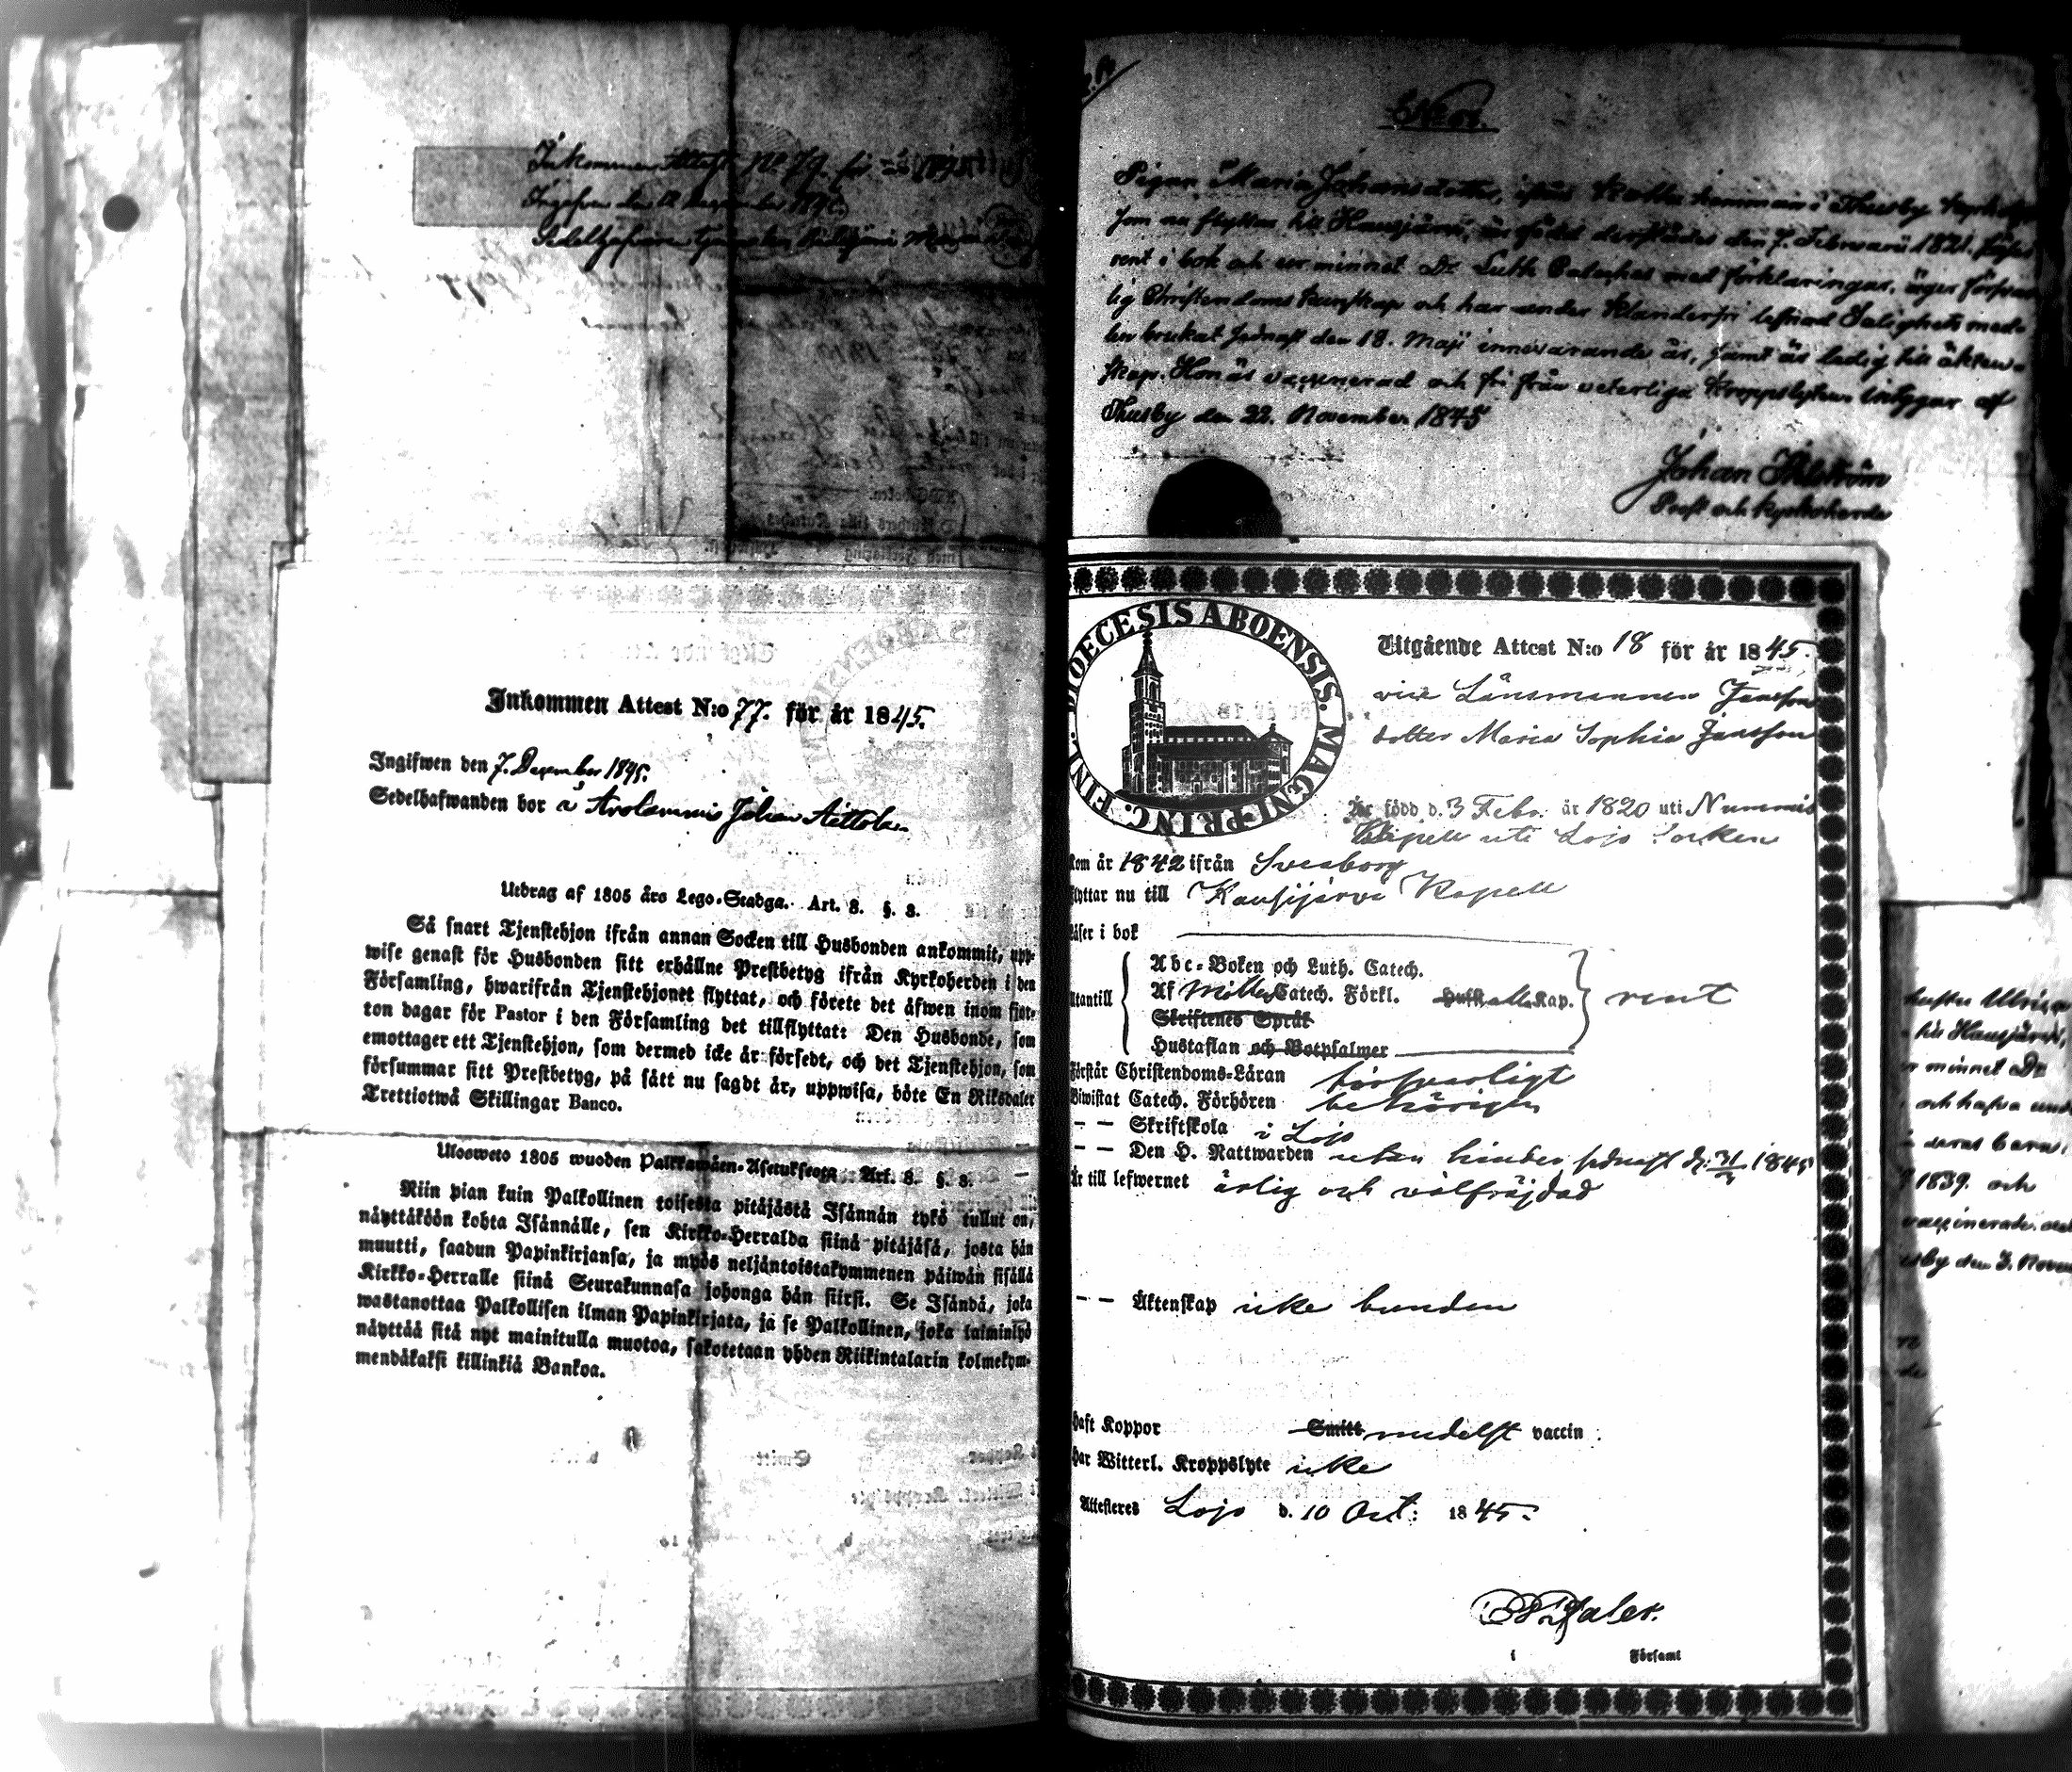 Inkommen Attest No 79. för år 1845.
Ingifven den December 1845.
Sedelhafvaren
Inkommen Attest N:o 77. för år 1845.
Ingifwen den 7. December 1845.
Sedelhafwanden bor i Arolammis Johan Aittola
Utdrag af 1805 års Lego-Stadga. Art. 8. §. 8.
Så snart Tjenstehjon ifrån annan Socken till Husbonden ankommit, upp-
wise genast för Husbonden sitt erhållne Prestbetyg ifrån Kyrkoherden i den
Församling, hwarifrån Tjenstehjonet flyttat, och förete det äfwen inom fjor-
ton dagar för Pastor i den Församling det tillflyttat: Den Husbonde, som
emottager ett Tjenstehjon, som dermed icke är försedt, och det Tjenstehjon, som
försummar sitt Prestbetyg, på sätt nu sagdt är, uppwisa, böte En Riksdaler
Trettiotwå Skillingar Banco.
Ulosweto 1805 wuoden Palkkawäen-Asetuksesta Art. 8. §. 8.
Niin pian kuin Palkollinen toisesta pitäjästä Isännän tykö tullut on,
näyttäköön kohta Isännälle, sen Kirkko-Herralda siinä pitäjäsä, josta hän
muutti, saadun Papinkirjansa, ja myös neljäntoistakymmenen päiwän sisällä
Kirkko-Herralle siinä Seurakunnasa johonga hän siirsi. Se Isändä, joka
wastanottaa Palkollisen ilman Papinkirjata, ja se Palkollinen, joka laiminlyö
näyttää sitä nyt mainitulla muotoa, sakotetaan yhden Riikintalarin kolmekym-
mendäkaksi killinkiä Bankoa.
Pigan Maria Johansdotter, ifrån kommun i Thusby
som nu flyttar till Hausjärvi, är född derstädes den 7. Februarii 1821. läser
rent i bok och ur minnet Dr Luth Catechés med förklaringar, äger försvar-
lig Christendoms kunskap och har under klanderfri lefnad Salighets med-
len brukat sednast den 18. Maji innevarande år, samt är ledig till äkten-
skap. Hon är vaccinerad och fri från veterliga kroppslyten intygar af
Thusby den 22. November 1845
Johan
Prost och kyrkoherde
FINL. DIOECESIS ABOENSIS. MAGNI-PRINC.
Utgående Attest N:o 18 för år 1845.
vice Länsmannen Jansson
dotter Maria Sophia Jansson
Är född d. 3 Febr. år 1820 uti Nummis
Capell uti Lojo Socken
kom år 1842 ifrån Sveaborg
flyttar nu till Hausjärvi Kapell
Läser i bok
Utantill
Abc-Boken och Luth. Catech.
Af Catech. Förkl. Kap. rent
Skriftenes Språk
Hustaflan och Botpsalmer
Förstår Christendoms-Läran försvarligt
Biwistat Catech. Förhören behörigen
– – Skriftskola i Lojo
– – Den H. Nattwarden utan hinder sednast d. 1845
Är till lefwernet ärlig och välfräjdad
– – Äktenskap icke bunden
Haft Koppor Smitt medelst vaccin
Har Witterl. Kroppslyte icke
Attesteres Lojo d. 10 Oct: 1845.
i Församl
hustru Ulrica
till Hausjärvi,
ur minnet Dr
och hafva und
deras barn,
1839. och
vaccinerade
Thusby den 3. Novem